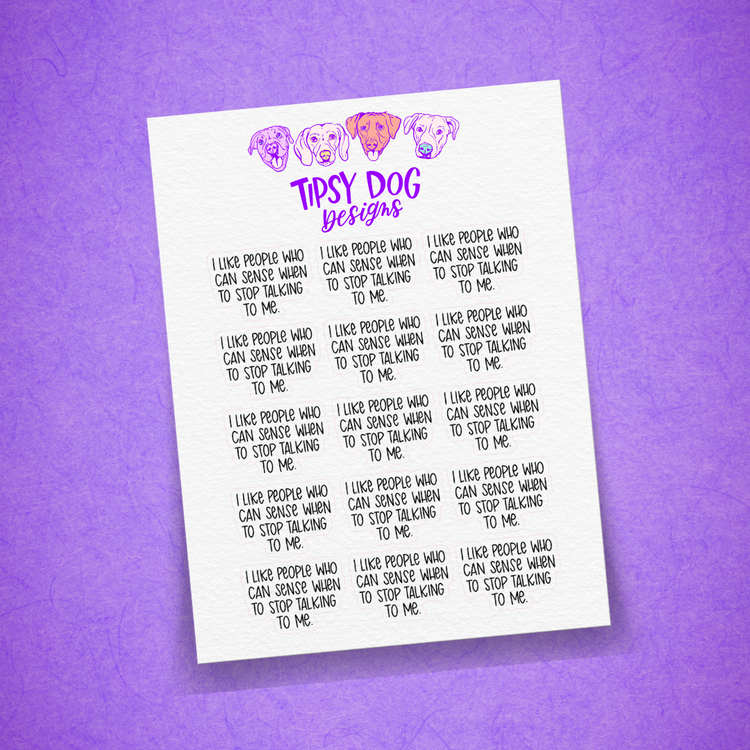 TIPSY DOG
Designs
I LIKE PEOPLE WHO
CAN SENSE WHEN
TO STOP TALKING
TO ME.
I LIKE PEOPLE WHO
CAN SENSE WHEN
TO STOP TALKING
TO ME.
I LIKE PEOPLE WHO
CAN SENSE WHEN
TO STOP TALKING
TO ME.
I LIKE PEOPLE WHO
CAN SENSE WHEN
TO STOP TALKING
TO ME.
I LIKE PEOPLE WHO
CAN SENSE WHEN
TO STOP TALKING
TO ME.
I LIKE PEOPLE WHO
CAN SENSE WHEN
TO STOP TALKING
TO ME.
I LIKE PEOPLE WHO
CAN SENSE WHEN
TO STOP TALKING
TO ME.
I LIKE PEOPLE WHO
CAN SENSE WHEN
TO STOP TALKING
TO ME.
I LIKE PEOPLE WHO
CAN SENSE WHEN
TO STOP TALKING
TO ME.
I LIKE PEOPLE WHO
CAN SENSE WHEN
TO STOP TALKING
TO ME.
I LIKE PEOPLE WHO
CAN SENSE WHEN
TO STOP TALKING
TO ME.
I LIKE PEOPLE WHO
CAN SENSE WHEN
TO STOP TALKING
TO ME.
I LIKE PEOPLE WHO
CAN SENSE WHEN
TO STOP TALKING
TO ME.
I LIKE PEOPLE WHO
CAN SENSE WHEN
TO STOP TALKING
TO ME.
I LIKE PEOPLE WHO
CAN SENSE WHEN
TO STOP TALKING
TO ME.